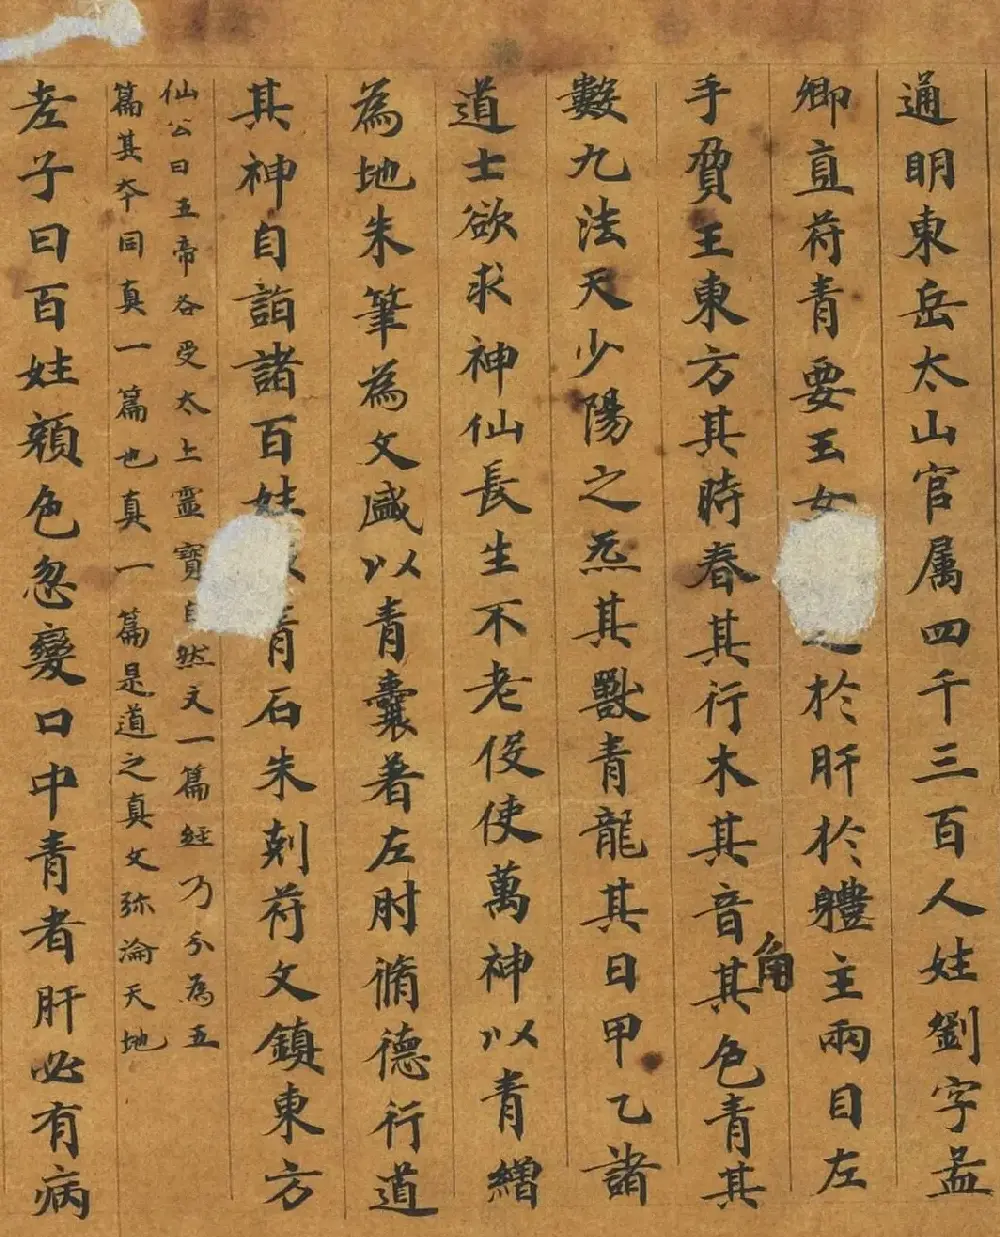 通明東岳太山官属四千三百人姓劉字孟
卿直符青要玉女之於肝於軆主兩目左
手貧王東方其時春其行木其音角其色青其
數九法天少陽之炁其獸青龍其日甲乙諸
道士欲求神仙長生不老伇使萬神以青繒
為地朱筆為文盛以青囊着左肘脩德行道
其神自詣諸百姓青石朱刻符文鎮東方
仙公曰五帝各受太上靈寶自然文一篇經乃分為五
篇其夲同真一篇也真一篇是道之真文弥淪天地
老子曰百姓顏色忽變口中青者肝必有病